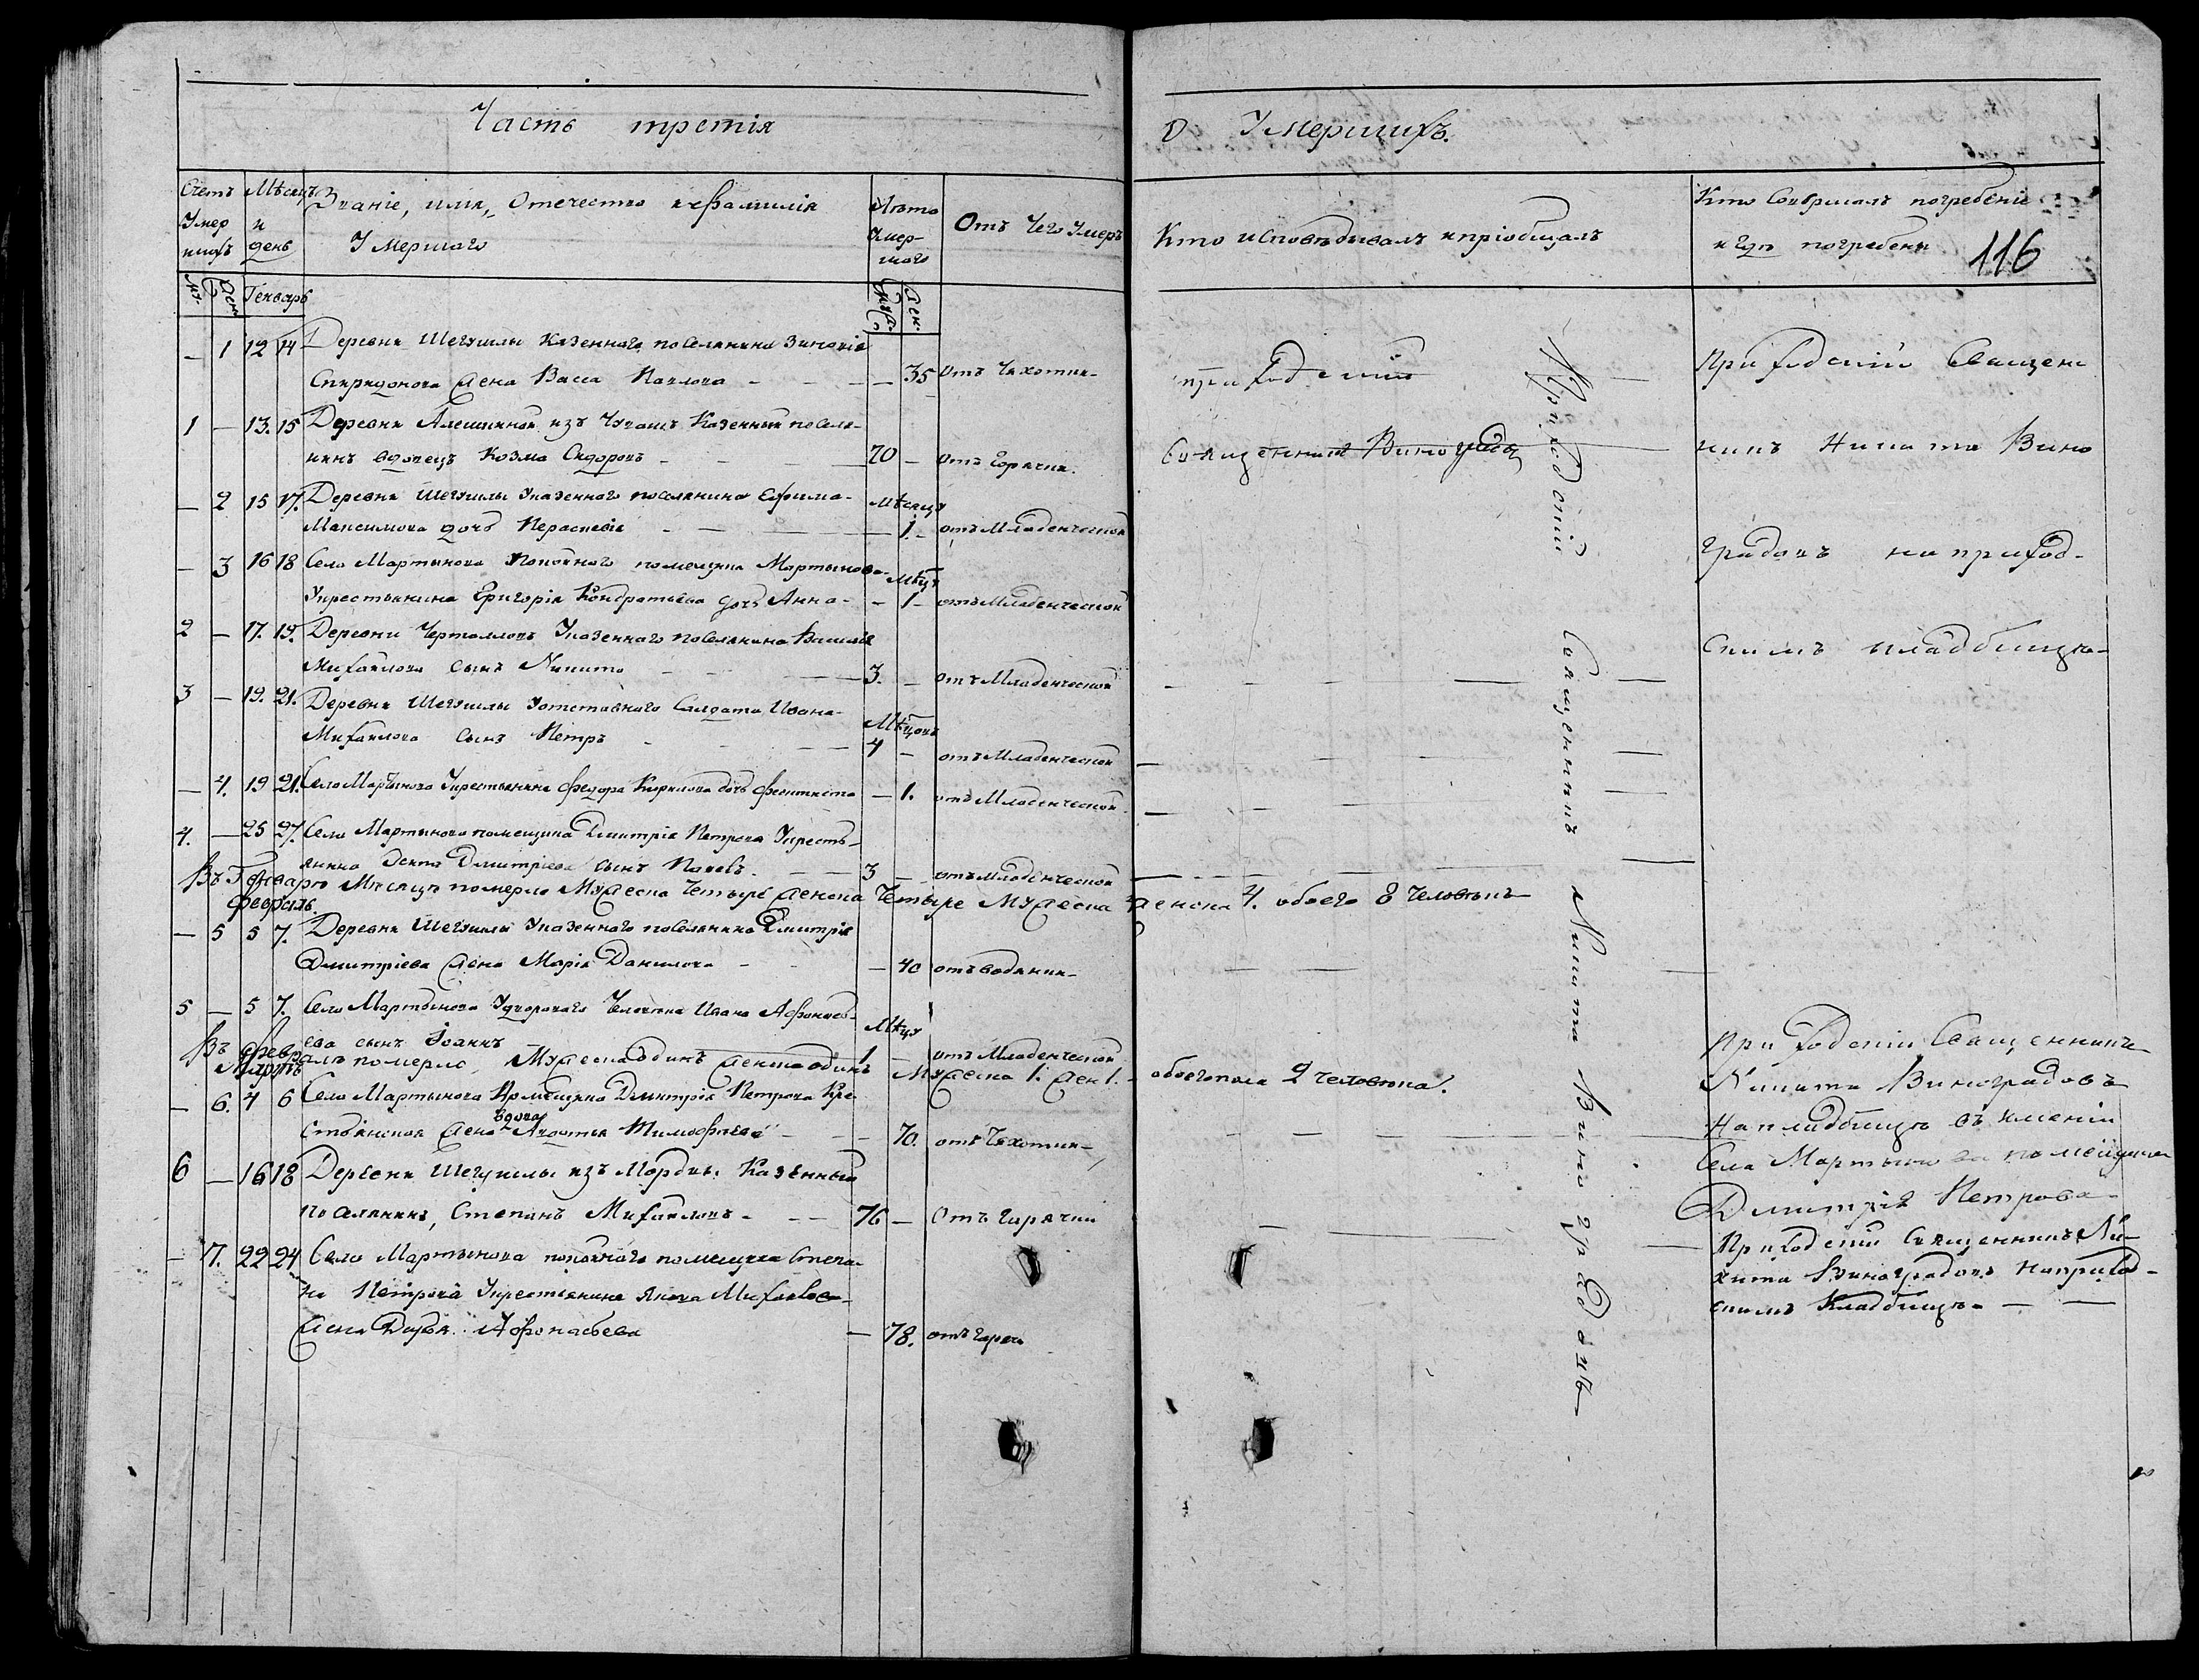 Часть третія
О Умершихъ.
Счетъ Умершихъ
Мѣсяцъ и день
Званіе, имя, Отечество и фамилія Умершаго
Лѣта Умершаго
Отъ Чего Умеръ
Кто исповѣдывалъ и пріобщалъ
Кто Совершалъ погребеніе и Гдѣ погребены
116
Генварь
— 1 12 14 Деревни Шегушлы Казеннаго поселянина Зиновія
Спиридонова жена Васса Павлова — 35 Отъ Чахотки
1 — 13. 15 Деревни Алешкиной изъ Чувашъ Казенный поселя-
нинъ вдовецъ Козма Сидоровъ 70 — отъ Горячки.
— 2 15 17. Деревни Шегушлы Указеннаго поселянина Ефима Мѣсяцъ
Максимова дочь Параскевія — 1 — отъ Младенческой
— 3 16 18 Село Мартынова Покойнаго помещика Мартынова Мѣцъ
Укрестьянина Григорія Кондратьева дочь Анна — 1 — отъ Младенческой
2 — 17. 19. Деревни Указеннаго поселянина Василія
Михайлова сынъ Никита 3. — отъ Младенческой
3 — 19. 21. Деревни Шегушлы Уотставнаго Салдата Ивана Мѣцовъ
Михайлова сынъ Петръ 4 — отъ Младенческой
— 4. 19 21. Село Мартынова Укрестьянина Федора Кирилова дочь Феоктиста — 1. отъ Младенческой
4. — 25 27. Село Мартынова помещика Дмитрія Петрова Укресть-
янина Дмитріева сынъ Павелъ 3 — отъ Младенческой
Въ Генварѣ Мѣсяцѣ померло Мужеска Четыре женска Четыре Мужеска женска 4. обоего 8 Человѣкъ
Февраль
— 5 5 7. Деревни Шегушлы Указеннаго поселянина Дмитрія
Дмитріева жена Марія Данилова — 40 отъ водянки
5 — 5 7. Село Мартынова Удвороваго Человека Ивана Афонась- Мѣцъ
ева сынъ Іоаннъ 1 — отъ Младенческой
Въ Февралѣ померло Мужеска Одинъ женска одинъ Мужеска 1. жен 1. обоегопола 2 человѣка.
Мартъ
— 6. 4 6 Село Мартынова Помещика Дмитрія Петрова Кре-
стьянская жена вдова Авдотья Тимофеева — 70. отъ Чахотки
6 — 16 18 Деревни Шегушлы изъ Мордвы Казенный
поселянинъ, Степанъ Михайловъ 76 — Отъ Горячки
— 7. 22 24 Село Мартынова покойнаго помещика Степа-
на Петрова Укрестьянина Якова Михайлова
жена Дарья Афонасьева — 78. отъ Горяч
приходскій
Священникъ Виноградовъ
Приходскій Священникъ Никита Виноградовъ
Приходскій Священ
никъ Никита Вино
градовъ на приход-
скимъ кладбищѣ
Приходскій Священникъ
Никита Виноградовъ
На кладбищѣ въ имѣніи
Села Мартынова помещика
Дмитрія Петрова
Приходскій Священникъ Ни-
кита Виноградовъ наприход-
скимъ Кладбищѣ